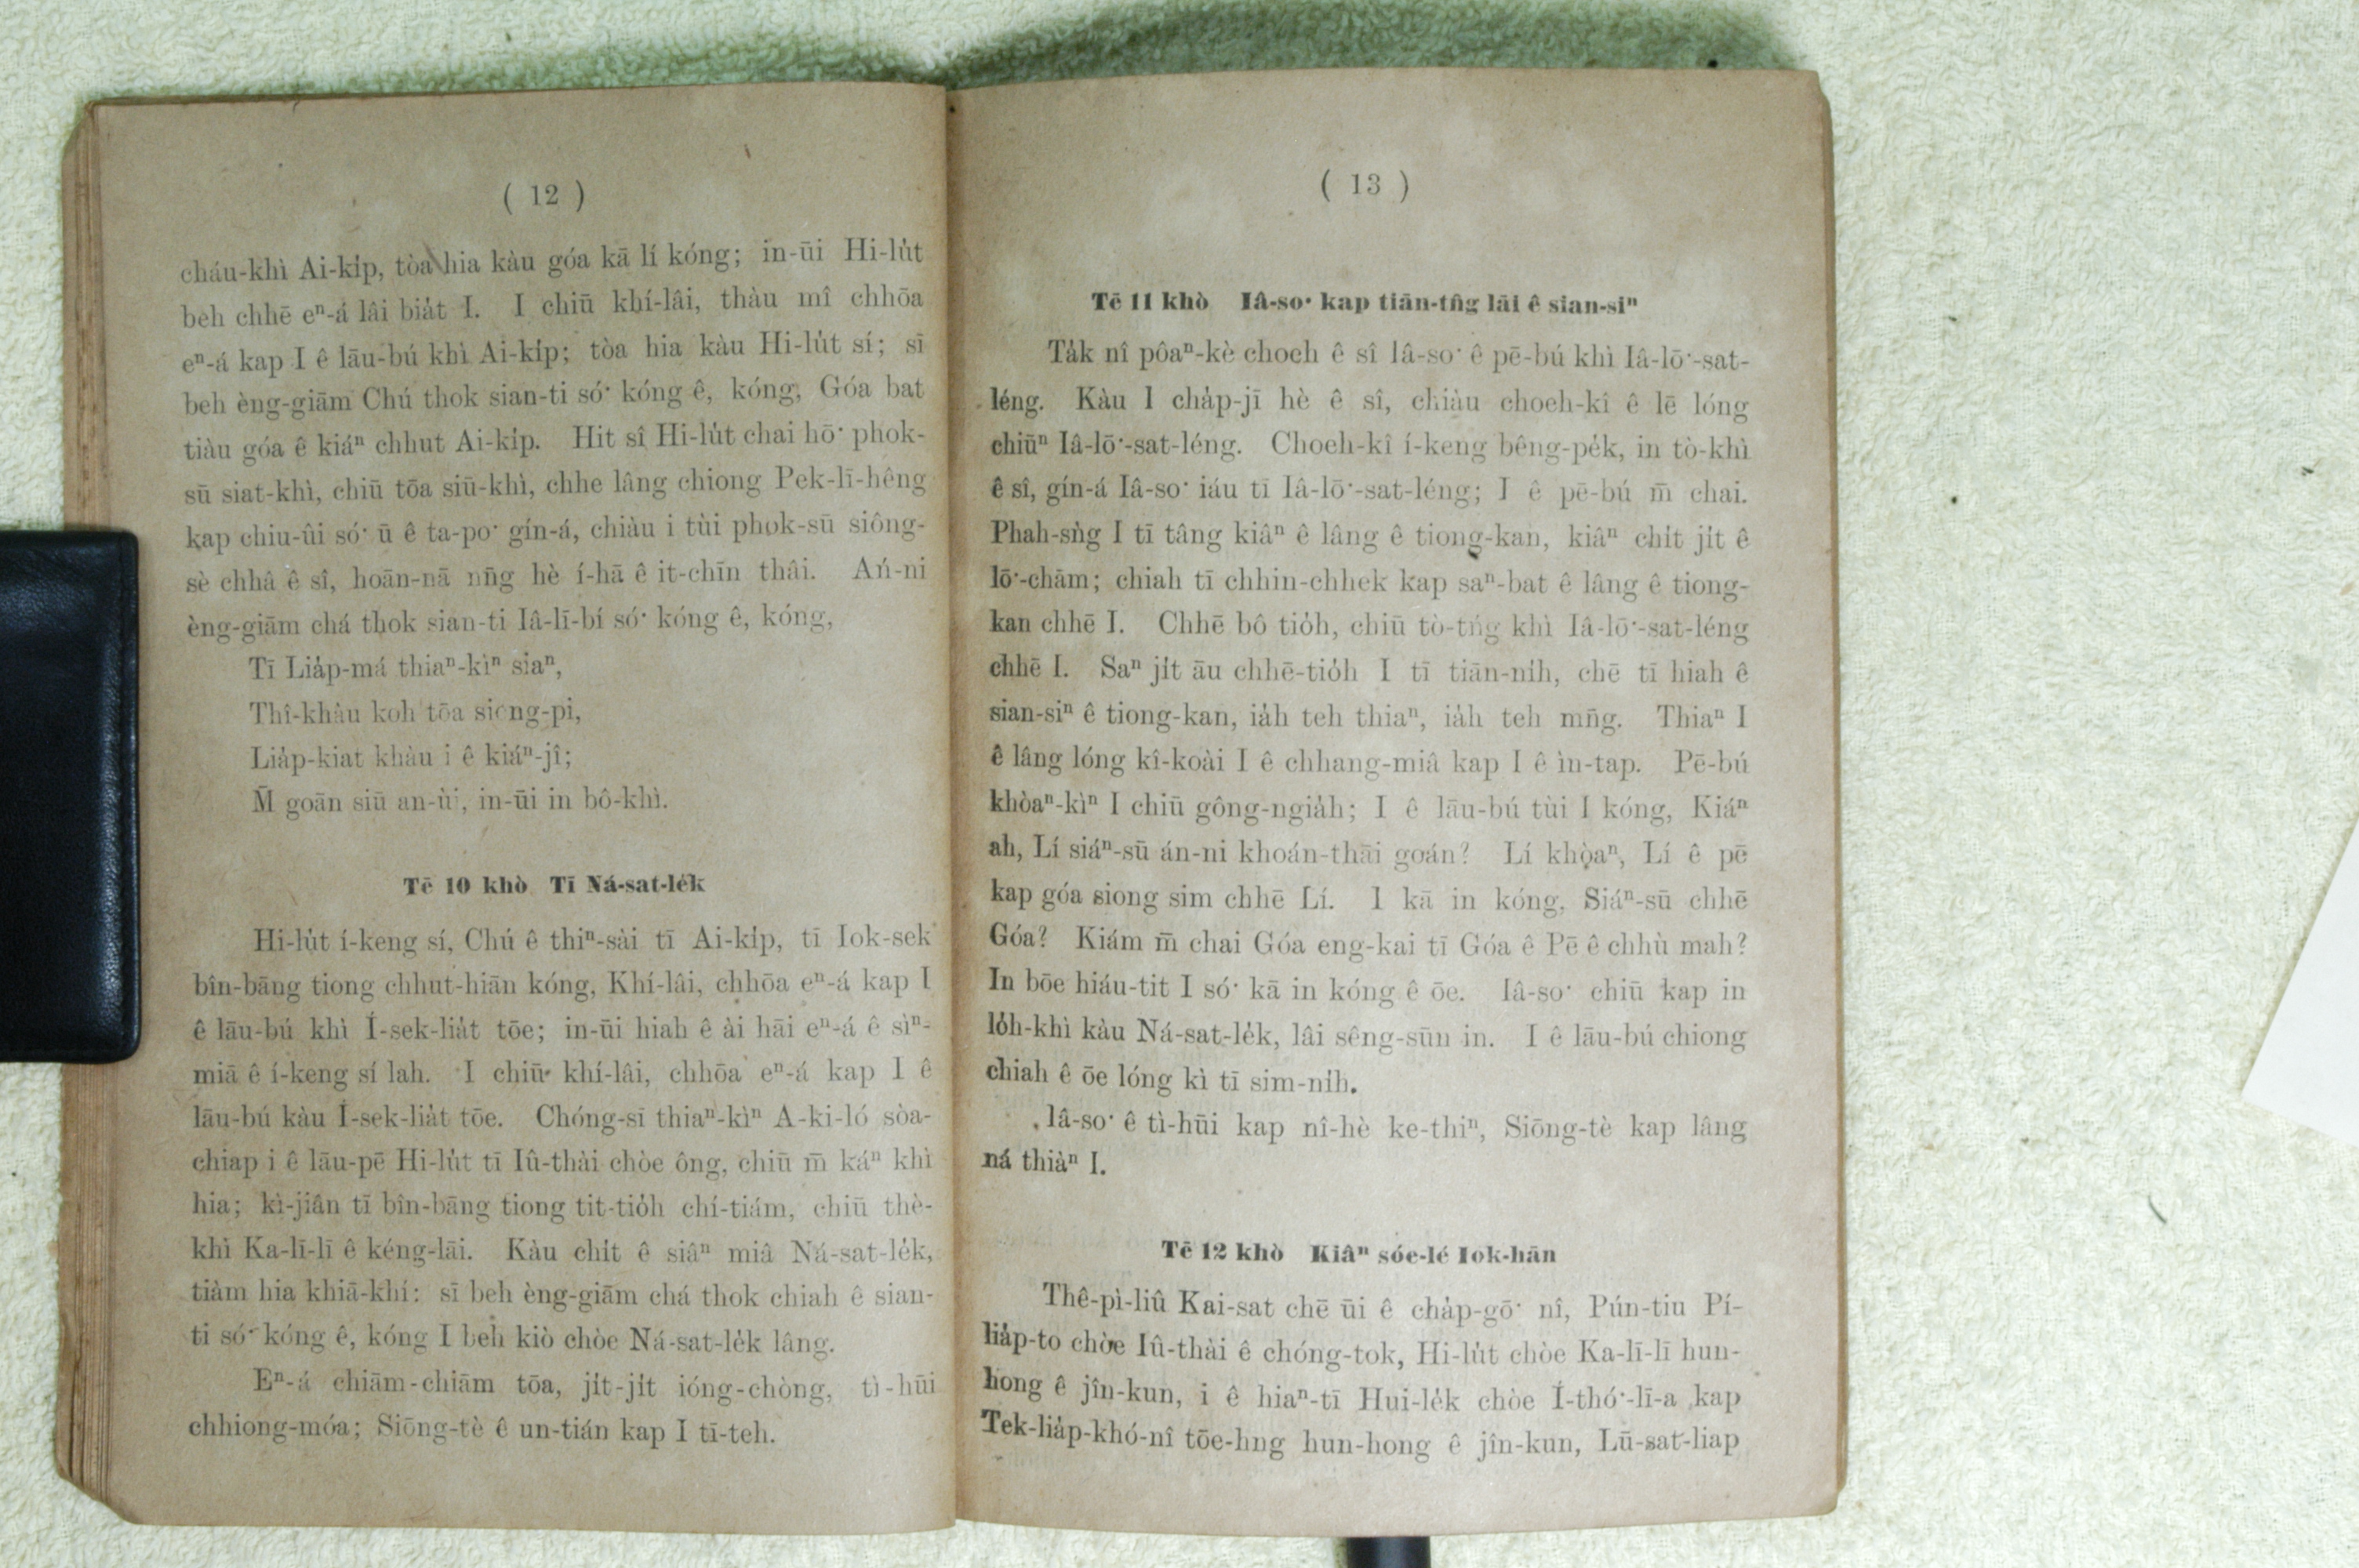 ( 12 )
cháu-khì Ai-ki̍p, tòa hia kàu góa kā lí kóng; in-ūi Hi-lu̍t
beh chhē eⁿ-á lâi bia̍t I. I chiū khí-lâi, thàu mî chhōa
eⁿ-á kap I ê lāu-bú khì Ai-ki̍p; tòa hia kàu Hi-lu̍t sí; sī
beh èng-giām Chú thok sian-ti só͘ kóng ê, kóng, Góa bat
tiàu góa ê kiáⁿ chhut Ai-ki̍p. Hit sî Hi-lu̍t chai hō͘ phok-
sū siat-khì, chiū tōa siū-khì, chhe lâng chiong Pek-lī-hêng
kap chiu-ûi só͘ ū ê ta-po͘ gín-á, chiàu i tùi phok-sū siông-
sè chhâ ê sî, hoān-nā nn̄g hè í-hā ê it-chīn thâi. Ań-ni
èng-giām chá thok sian-ti Iâ-lī-bí só͘ kóng ê, kóng,
Tī Lia̍p-má thiaⁿ-kìⁿ siaⁿ,
Thî-khàu koh tōa siong-pi,
Lia̍p-kiat khàu i ê kiáⁿ-jî;
M̄ goān siū an-ùi, in-ūi in bô-khì.
Tē 10 khò Tī Ná-sat-le̍k
Hi-lu̍t í-keng sí, Chú ê thiⁿ-sài tī Ai-ki̍p, tī Iok-sek
bîn-bāng tiong chhut-hiān kóng, Khí-lâi, chhōa eⁿ-á kap I
ê lāu-bú khì Í-sek-lia̍t tōe; in-ūi hiah ê ài hāi eⁿ-á ê sìⁿ-
miā ê í-keng sí lah. I chiū khí-lâi, chhōa eⁿ-á kap I ê
lāu-bú kàu Í-sek-lia̍t tōe. Chóng-sī thiaⁿ-kìⁿ A-ki-ló sòa-
chiap i ê lāu-pē Hi-lu̍t tī Iû-thài chòe ông, chiū m̄ káⁿ khì
hia; kì-jiân tī bîn-bāng tiong tit-tio̍h chí-tiám, chiū thè-
khì Ka-lī-lī ê kéng-lāi. Kàu chi̍t ê siâⁿ miâ Ná-sat-le̍k,
tiàm hia khiā-khí: sī beh èng-giām chá thok chiah ê sian-
ti só͘ kóng ê, kóng I beh kiò chòe Ná-sat-le̍k lâng.
Eⁿ-á chiām-chiām tōa, ji̍t-ji̍t ióng-chòng, tì-hūi
chhiong-móa; Siōng-tè ê un-tián kap I tī-teh.
( 13 )
Tē 11 khò Iâ-so͘ kap tiān-tn̂g lāi ê sian-siⁿ
Ta̍k nî pôaⁿ-kè choeh ê sî Iâ-so͘ ê pē-bú khì Iâ-lō͘-sat-
léng. Kàu I cha̍p-jī hè ê sî, chiàu choeh-kî ê lē lóng
chiūⁿ Iâ-lō͘-sat-léng. Choeh-kî í-keng bêng-pe̍k, in tò-khì
ê sî, gín-á Iâ-so͘ iáu tī Iâ-lō͘-sat-léng; I ê pē-bú m̄ chai.
Phah-sǹg I tī tâng kiâⁿ ê lâng ê tiong-kan, kiâⁿ chi̍t ji̍t ê
lō͘-chām; chiah tī chhin-chhek kap saⁿ-bat ê lâng ê tiong-
kan chhē I. Chhē bô tio̍h, chiū tò-tńg khì Iâ-lō͘-sat-léng
chhē I. Saⁿ ji̍t āu chhē-tio̍h I tī tiān-ni̍h, chē tī hiah ê
sian-siⁿ ê tiong-kan, ia̍h teh thiaⁿ, ia̍h teh mn̄g. Thiaⁿ I
ê lâng lóng kî-koài I ê chhang-miâ kap I ê ìn-tap. Pē-bú
khòaⁿ-kìⁿ I chiū gông-ngia̍h; I ê lāu-bú tùi I kóng, Kiáⁿ
ah, Lí siáⁿ-sū án-ni khoán-thāi goán? Lí khòaⁿ, Lí ê pē
kap góa siong sim chhē Lí. I kā in kóng, Siáⁿ-sū chhē
Góa? Kiám m̄ chai Góa eng-kai tī Góa ê Pē ê chhù mah?
In bōe hiáu-tit I só͘ kā in kóng ê ōe. Iâ-so͘ chiū kap in
lo̍h-khì kàu Ná-sat-le̍k, lâi sêng-sūn in. I ê lāu-bú chiong
chiah ê ōe lóng kì tī sim-ni̍h.
Iâ-so͘ ê tì-hūi kap nî-hè ke-thiⁿ, Siōng-tè kap lâng
ná thiàⁿ I.
Tē 12 khò Kiâⁿ sóe-lé Iok-hān
Thê-pì-liû Kai-sat chē ūi ê cha̍p-gō͘ nî, Pún-tiu Pí-
lia̍p-to chòe Iû-thài ê chóng-tok, Hi-lu̍t chòe Ka-lī-lī hun-
hong ê jîn-kun, i ê hiaⁿ-tī Hui-le̍k chòe Í-thó͘-lī-a kap
Tek-lia̍p-khó-nî tōe-hng hun-hong ê jîn-kun, Lū-sat-liap